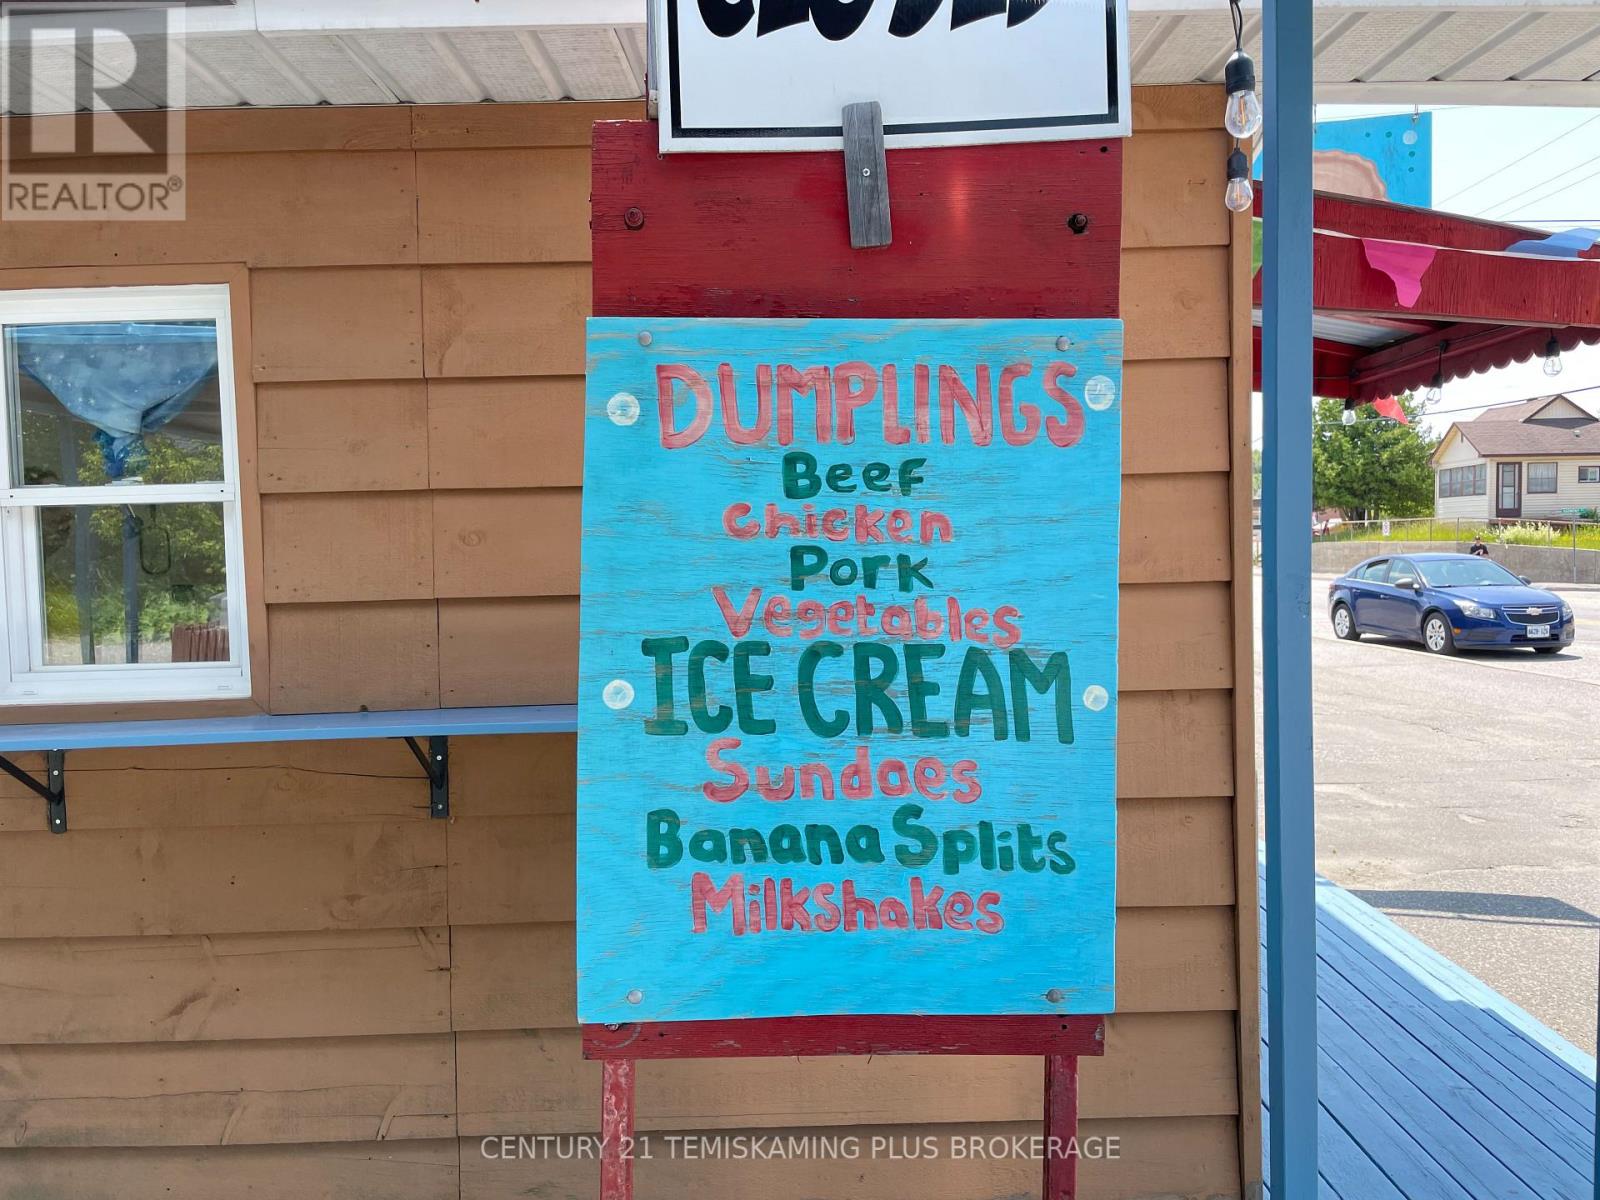 CLOSED
R
REALTOR®
DUMPLINGS
Beef
Chicken
Pork
Vegetables
ICE CREAM
Sundaes
Banana Splits
Milkshakes
CENTURY 21 TEMISKAMING PLUS BROKERAGE